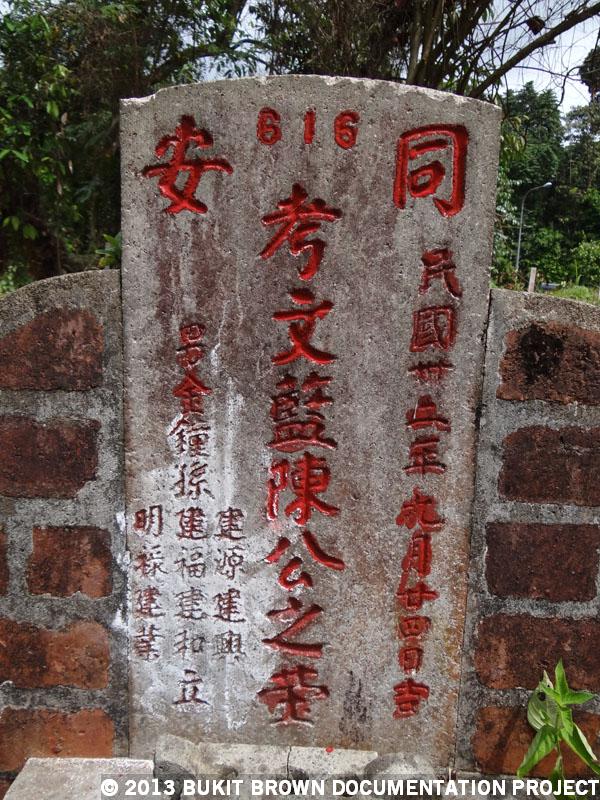 616
同安
民國卅五年九月廿四日吉
考文藍陳公之茔
建源建興
男金鐘孫建福建和立
明採建業
© 2013 BUKIT BROWN DOCUMENTATION PROJECT